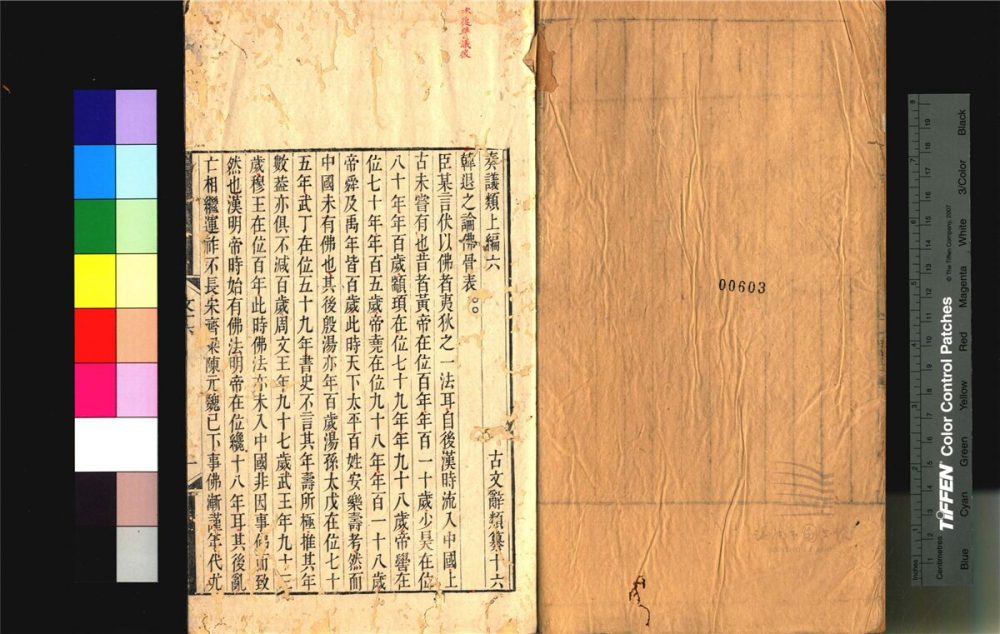 奏議類上編六 古文辭類纂十六
韓退之論佛骨表。。
臣某言伏以佛者夷狄之一法耳自後漢時流入中國上
古未嘗有也昔者黃帝在位百年年百一十歲少昊在位
八十年年百歲顓頊在位七十九年年九十八歲帝嚳在
位七十年年百五歲帝堯在位九十八年年百一十八歲
帝舜及禹年皆百歲此時天下太平百姓安樂壽考然而
中國未有佛也其後殷湯亦年百歲湯孫太戊在位七十
五年武丁在位五十九年書史不言其年壽所極推其年
數葢亦俱不減百歲周文王年九十七歲武王年九十三
歲穆王在位百年此時佛法亦未入中國非因事佛而致
然也漢明帝時始有佛法明帝在位纔十八年耳其後亂
亡相繼運祚不長宋齊梁陳元魏已下事佛漸謹年代尤
00603
TIFFEN Color Control Patches
© The Tiffen Company, 2007
Inches
Centimetres
Blue Cyan Green Yellow Red Magenta White 3/Color Black